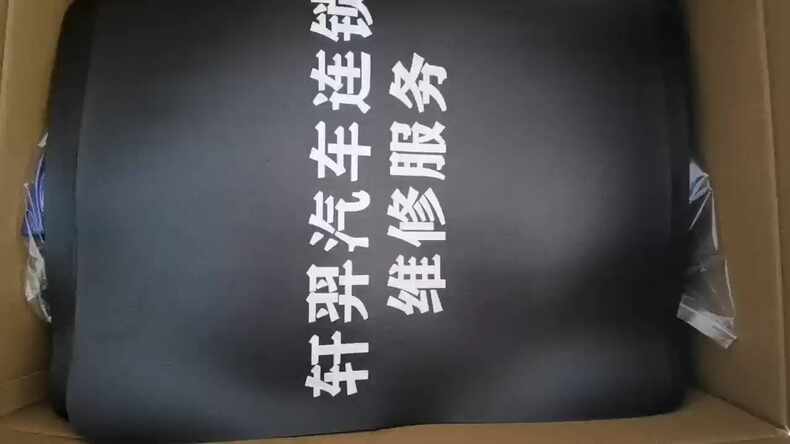 轩羿汽车连锁
维修服务